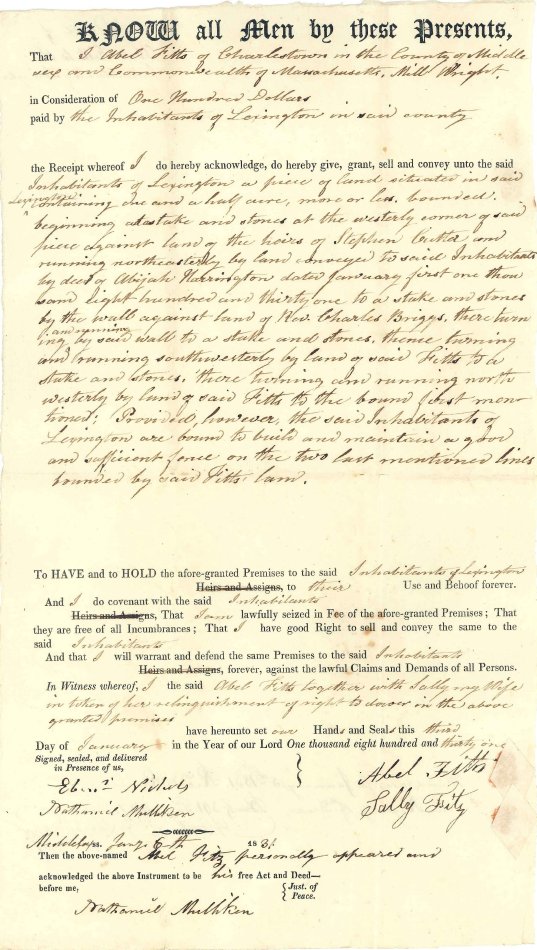 KNOW all Men by these Presents,
That I Abel Fitts of Charlestown in the County of Middle
sex and Commonwealth of Massachusetts, Mill Wright.
in Consideration of One Hundred Dollars
paid by the Inhabitants of Lexington in said county
the Receipt whereof I do hereby acknowledge, do hereby give, grant, sell and convey unto the said
Inhabitants of Lexington a piece of land situated in said
Lexington
containing one and a half acre, more or less, bounded.
beginning at a stake and stones at the westerly corner of said
piece against land of the heirs of Stephen Cutter and
running northeasterly by land conveyed to said Inhabitants
by deed of Abijah Harrington dated January first one thou
sand eight hundred and thirty one to a stake and stones
by the wall against land of Rev. Charles Briggs, there turn
and running
ing by said wall to a stake and stones, thence turning
and running southwesterly by land of said Fitts to a
stake and stones; there turning and running north
westerly by land of said Fitts to the bound first men
tioned; Provided, however, the said Inhabitants of
Lexington are bound to build and maintain a good
and sufficient fence on the two last mentioned lines
bounded by said Fitts' land.
To HAVE and to HOLD the afore-granted Premises to the said Inhabitants of Lexington
Heirs and Assigns, to their Use and Behoof forever.
And I do covenant with the said Inhabitants
Heirs and Assigns, That I am lawfully seized in Fee of the afore-granted Premises; That
they are free of all Incumbrances; That I have good Right to sell and convey the same to the
said Inhabitants
And that I will warrant and defend the same Premises to the said Inhabitants
Heirs and Assigns, forever, against the lawful Claims and Demands of all Persons.
In Witness whereof, I the said Abel Fitts together with Sally my Wife
in token of her relinquishment of right to dower in the above
granted premises
have hereunto set our Hands and Seals this third
Day of January in the Year of our Lord One thousand eight hundred and thirty one
Signed, sealed, and delivered
in Presence of us,
Abel Fitts
Ebenr Nichols
Sally Fitz
Nathaniel Mulliken
Middlesex ss. Jany. 6th 1831
Then the above-named Abel Fitz personally appeared and
acknowledged the above Instrument to be his free Act and Deed—
before me, Just. of
Peace.
Nathaniel Mulliken